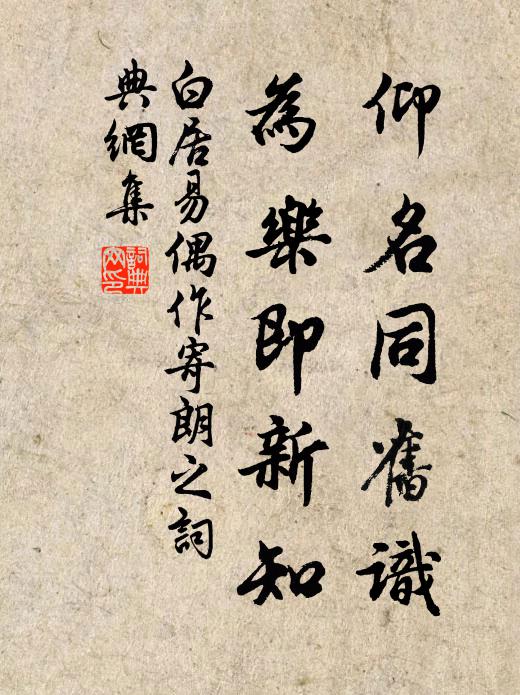 仰名同舊識
為樂即新知
白居易偶作寄朗之詞
典網集
詞典